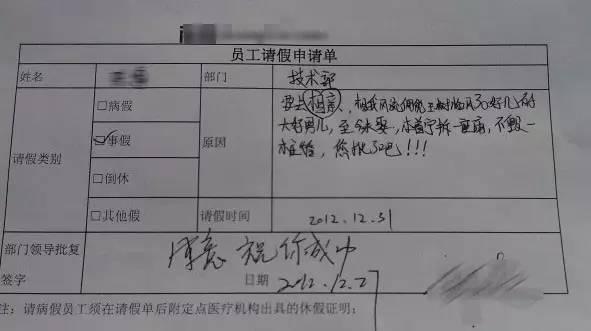 员工请假申请单
姓名 部门 技术部
请假类别 □病假 原因 要去相亲，想我风流倜傥玉树临风30好几
大好男儿，至今未娶，本着宁拆一座庙，不毁一
☑事假
桩婚，您批了吧！！！
□倒休
□其他假 请假时间 2012.12.31
部门领导批复 同意 祝你成功
签字 日期 2012.12.27
注：请病假员工须在请假单后附定点医疗机构出具的休假证明；